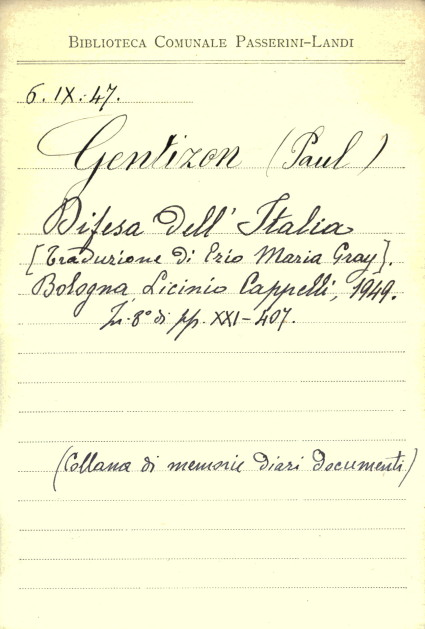 BIBLIOTECA COMUNALE PASSERINI-LANDI
6. IX. 47.
Gentizon (Paul)
Difesa dell' Italia
[Traduzione di Ezio Maria Gray].
Bologna, Licinio Cappelli, 1949.
In-8° di pp. XXI-407.
(Collana di memorie diari documenti)